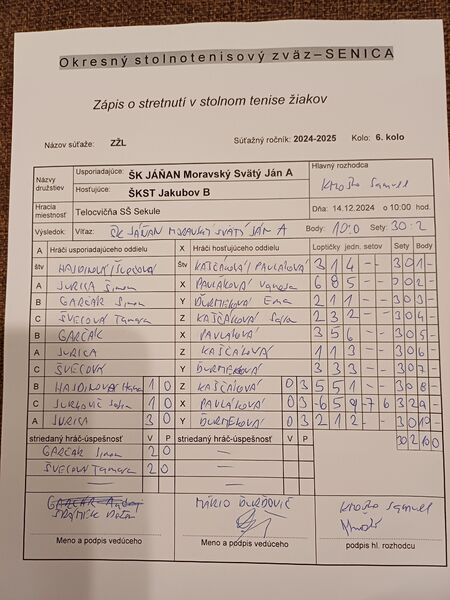 Okresný stolnotenisový zväz–SENICA
Zápis o stretnutí v stolnom tenise žiakov
Názov súťaže: ZŽL Súťažný ročník: 2024-2025 Kolo: 6. kolo
Názvy družstiev Usporiadajúce: ŠK JÁŇAN Moravský Svätý Ján A Hlavný rozhodca
Hosťujúce: ŠKST Jakubov B Samuel
Hracia miestnosť Telocvičňa SŠ Sekule Dňa: 14.12.2024 o 10:00 hod.
Výsledok: Víťaz: ŠK JÁŇAN MORAVSKÝ SVÄTÝ JÁN A Body: 10:0 Sety: 30:2
A Hráči usporiadajúceho oddielu X Hráči hosťujúceho oddielu Loptičky jedn. setov Sety Body
štv HAJDINOVÁ/ŠVECOVÁ Štv KAŠČÁKOVÁ/PAVLÁKOVÁ 3 1 4 - - 3 0 1 -
A JURICA Šimon X PAVLÁKOVÁ Vanesa 6 8 5 - - 3 0 2 -
B GARČÁR Šimon Y ĎURMEKOVÁ Ema 2 1 1 - - 3 0 3 -
C ŠVECOVÁ Tamara Z KAŠČÁKOVÁ 2 3 2 - - 3 0 4 -
B GARČÁR X PAVLÁKOVÁ 3 5 6 - - 3 0 5 -
A JURICA Z KAŠČÁKOVÁ 1 1 3 - - 3 0 6 -
C ŠVECOVÁ Y ĎURMEKOVÁ 3 3 3 - - 3 0 7 -
B HAJDINOVÁ 1 0 Z KAŠČÁKOVÁ 0 3 5 5 1 - - 3 0 8 -
C 1 0 X PAVLÁKOVÁ 0 3 -6 5 9 -7 6 3 2 9 -
A JURICA 3 0 Y ĎURMEKOVÁ 0 3 2 1 2 - - 3 0 10 -
striedaný hráč-úspešnosť V P striedaný hráč-úspešnosť V P 30 2 10 0
GARČÁR Šimon 2 0 —
ŠVECOVÁ Tamara 2 0 —
— —
GARČÁR MÁRIO Samuel
Meno a podpis vedúceho Meno a podpis vedúceho podpis hl. rozhodcu